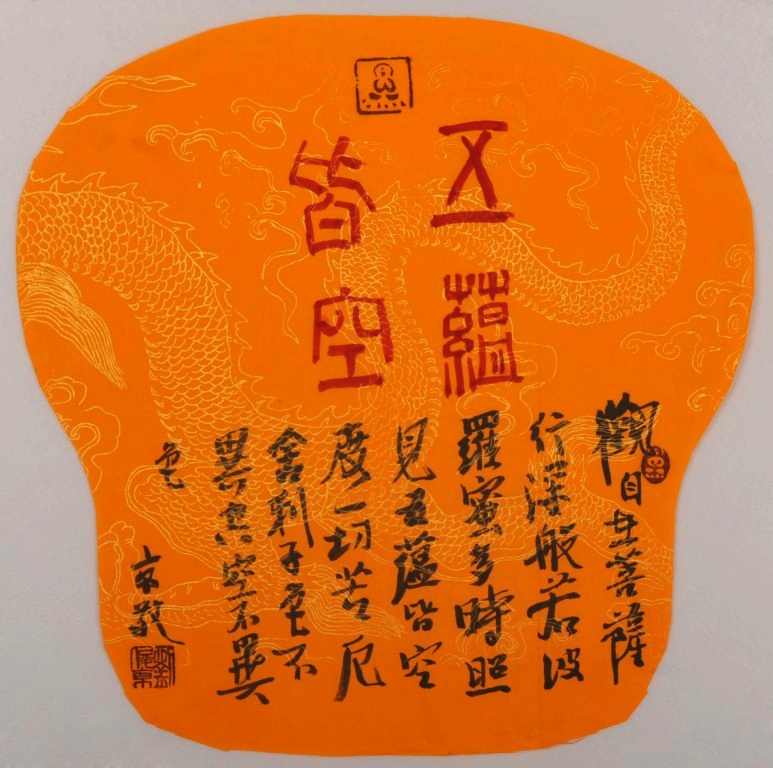 五蘊
皆空
觀自在菩薩
行深般若波
羅蜜多時照
見五蘊皆空
度一切苦厄
舍利子色不
異空空不異
色
京敬